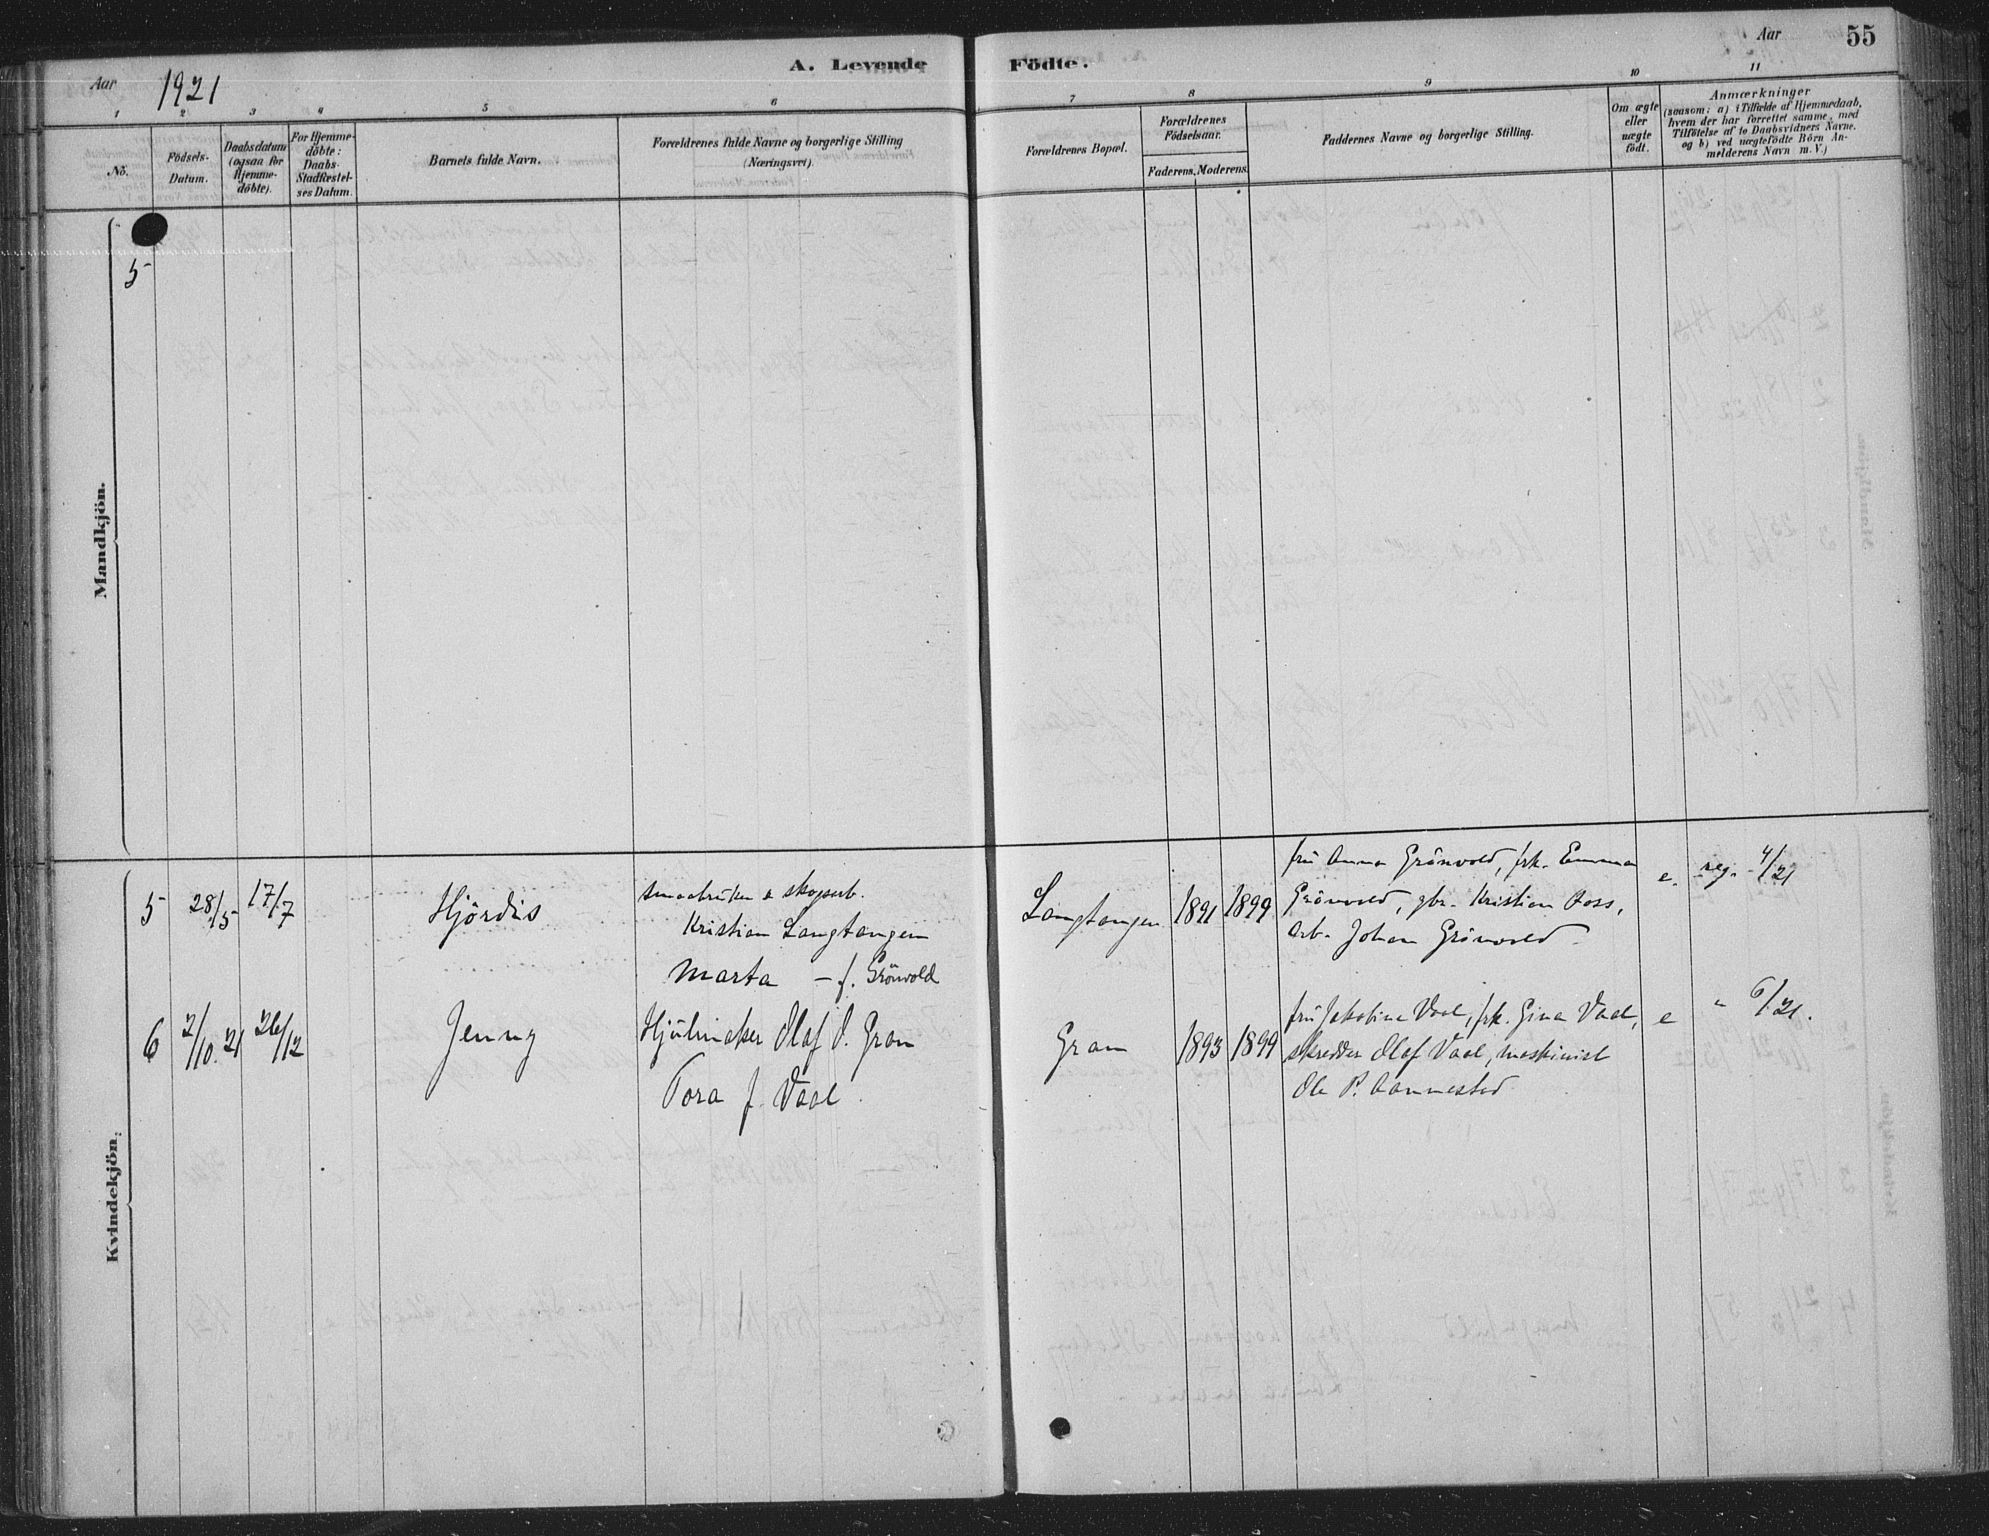 Aar 1921
A. Levende
Födte.
Aar
55
1 2 3 4 5 6 7 8 9 10 11
No.
Födsels-
Datum.
Daabsdatum
(ogsaa for
Hjemme-
döbte).
For Hjemme-
döbte:
Daabs-
Stadfæstel-
ses Datum.
Barnets fulde Navn.
Forældrenes fulde Navne og borgerlige Stilling
(Næringsvei).
Forældrenes Bopæl.
Forældrenes
Födselsaar.
Faderens. Moderens.
Faddernes Navne og borgerlige Stilling.
Om ægte
eller
uægte
födt.
Anmærkninger
(saasom: a) i Tilfælde af Hjemmedaab,
hvem der har forrettet samme, med
Tilföielse af to Daabsvidners Navne.
og b) ved uægtefödte Börn An-
melderens Navn m. V.)
Mandkjön.
5
Kvindekjön.
5 28/5 17/7 Hjördis
smaabruker & skogsarb.
Kristian Langtangen
Marta – f. Grönvold
Langtangen 1891 1899
fru Anna Grönvold, frk. Emma
Grönvold, gbr. Kristian Aass,
arb. Johan Grönvold
e. reg. 4/21
6 2/10.21 26/12 Jenny
Hjulmaker Olaf O. Gran
Tora f. Vaal
Gran 1893 1899
fru Jakobine Vaal, frk. Gina Vaal,
skredder Olaf Vaal, maskinist
Ole P. Aannestad
e " 6/21.